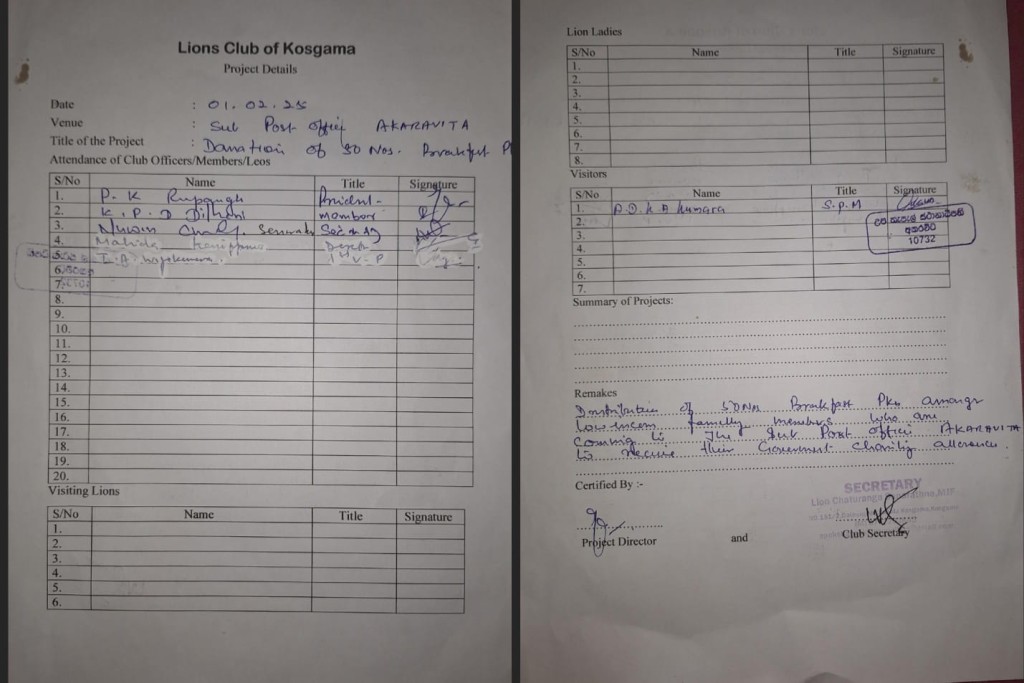 Lions Club of Kosgama
Project Details
Date : 01.02.25
Venue : Sub Post Office AKARAVITA
Title of the Project : Donation of 50 Nos. Breakfast P
Attendance of Club Officers/Members/Leos
S/No Name Title Signature
1. P. K President
2. K. P. D Dilhani member
3. Nuwan
4. Mahida
5. I.A 1st V.P
6.
7.
8.
9.
10.
11.
12.
13.
14.
15.
16.
17.
18.
19.
20.
Visiting Lions
S/No Name Title Signature
1.
2.
3.
4.
5.
6.
Lion Ladies
S/No Name Title Signature
1.
2.
3.
4.
5.
6.
7.
8.
Visitors
S/No Name Title Signature
1. P.D.K.A Kumara S.P.M
2.
3.
4.
5.
6.
7.
10732
Summary of Projects:
Remakes
Distribution of 50Nos Breakfast Pkts amongs
low incom familly members who are
comming to The Sub Post office AKARAVITA
to recive their Goverment charity allowance.
Certified By :-
SECRETARY
Lion Chaturanga MJF
Project Director and Club Secretary